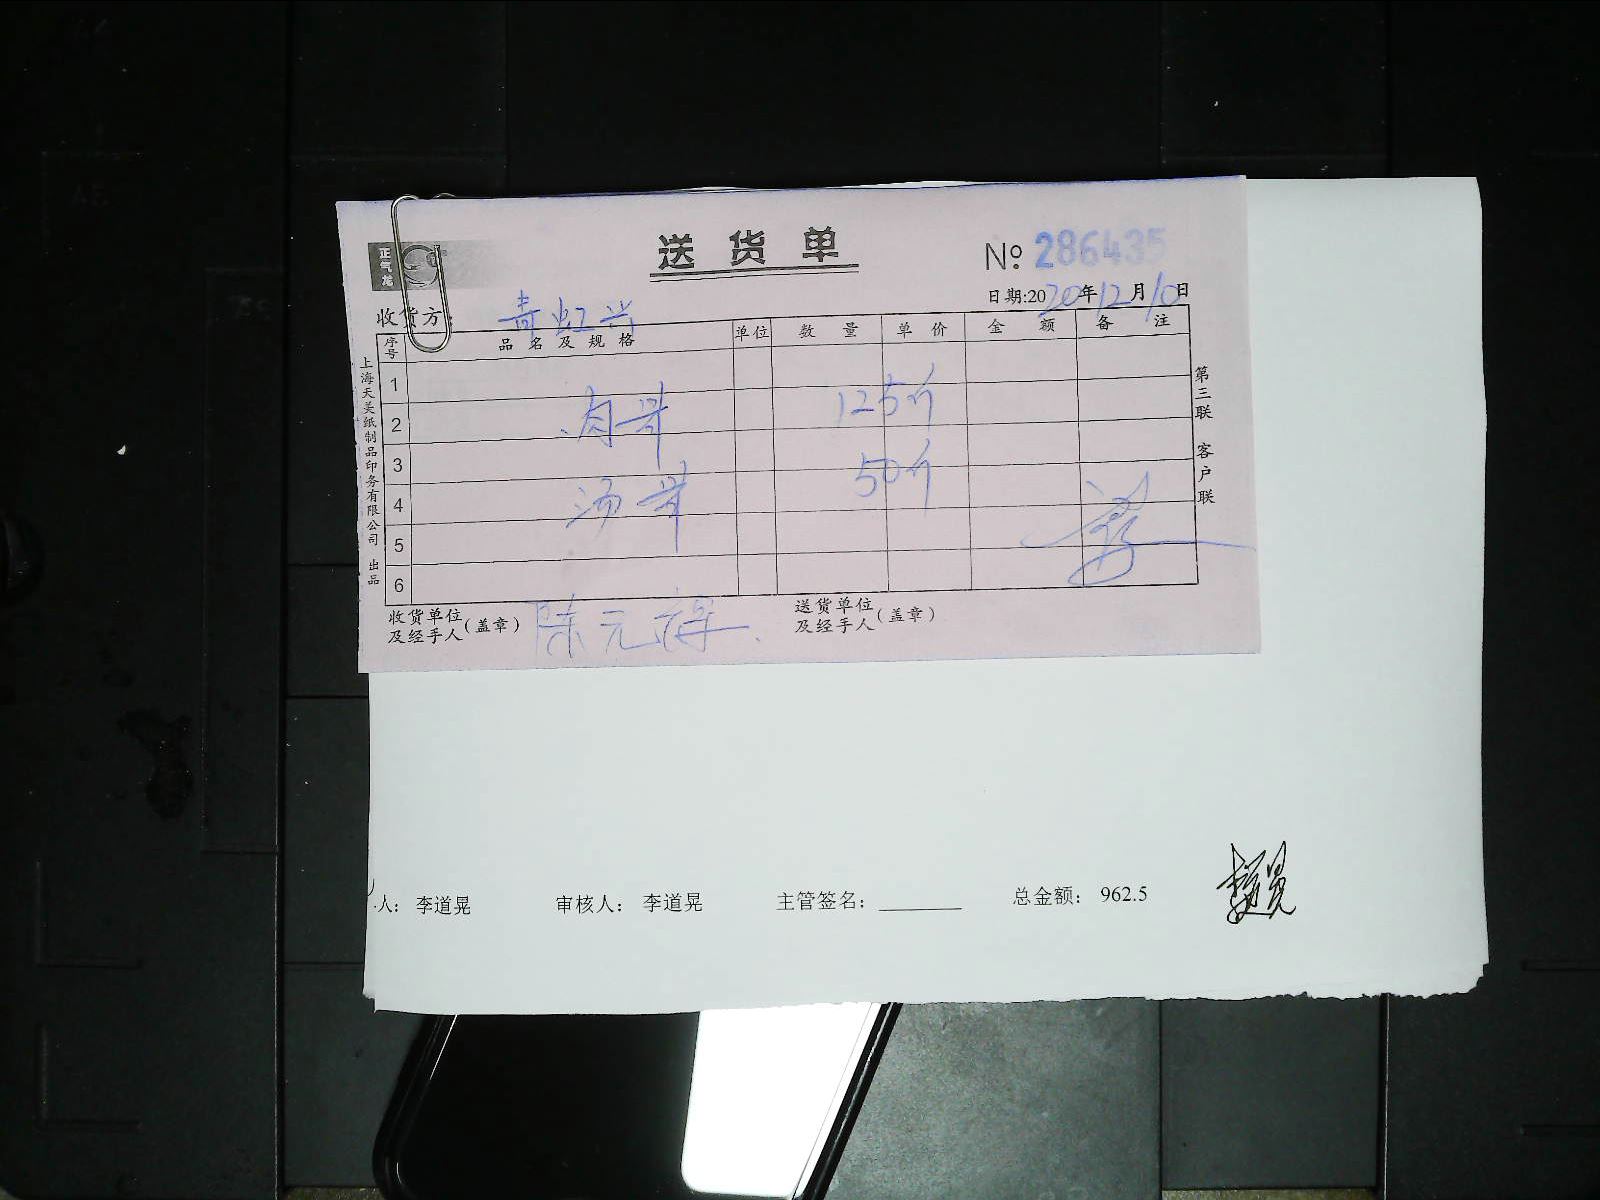 正气龙
送货单
No 286435
日期:2020年12月10日
收货方: 青虹兴
序号 品名及规格 单位 数量 单价 金额 备注
1
2 肉骨 125斤
3
4 汤骨 50斤
5
6
收货单位及经手人(盖章) 陈元禄
送货单位及经手人(盖章)
上海天美纸制品印务有限公司 出品
第三联 客户联
人: 李道晃 审核人: 李道晃 主管签名: 总金额: 962.5